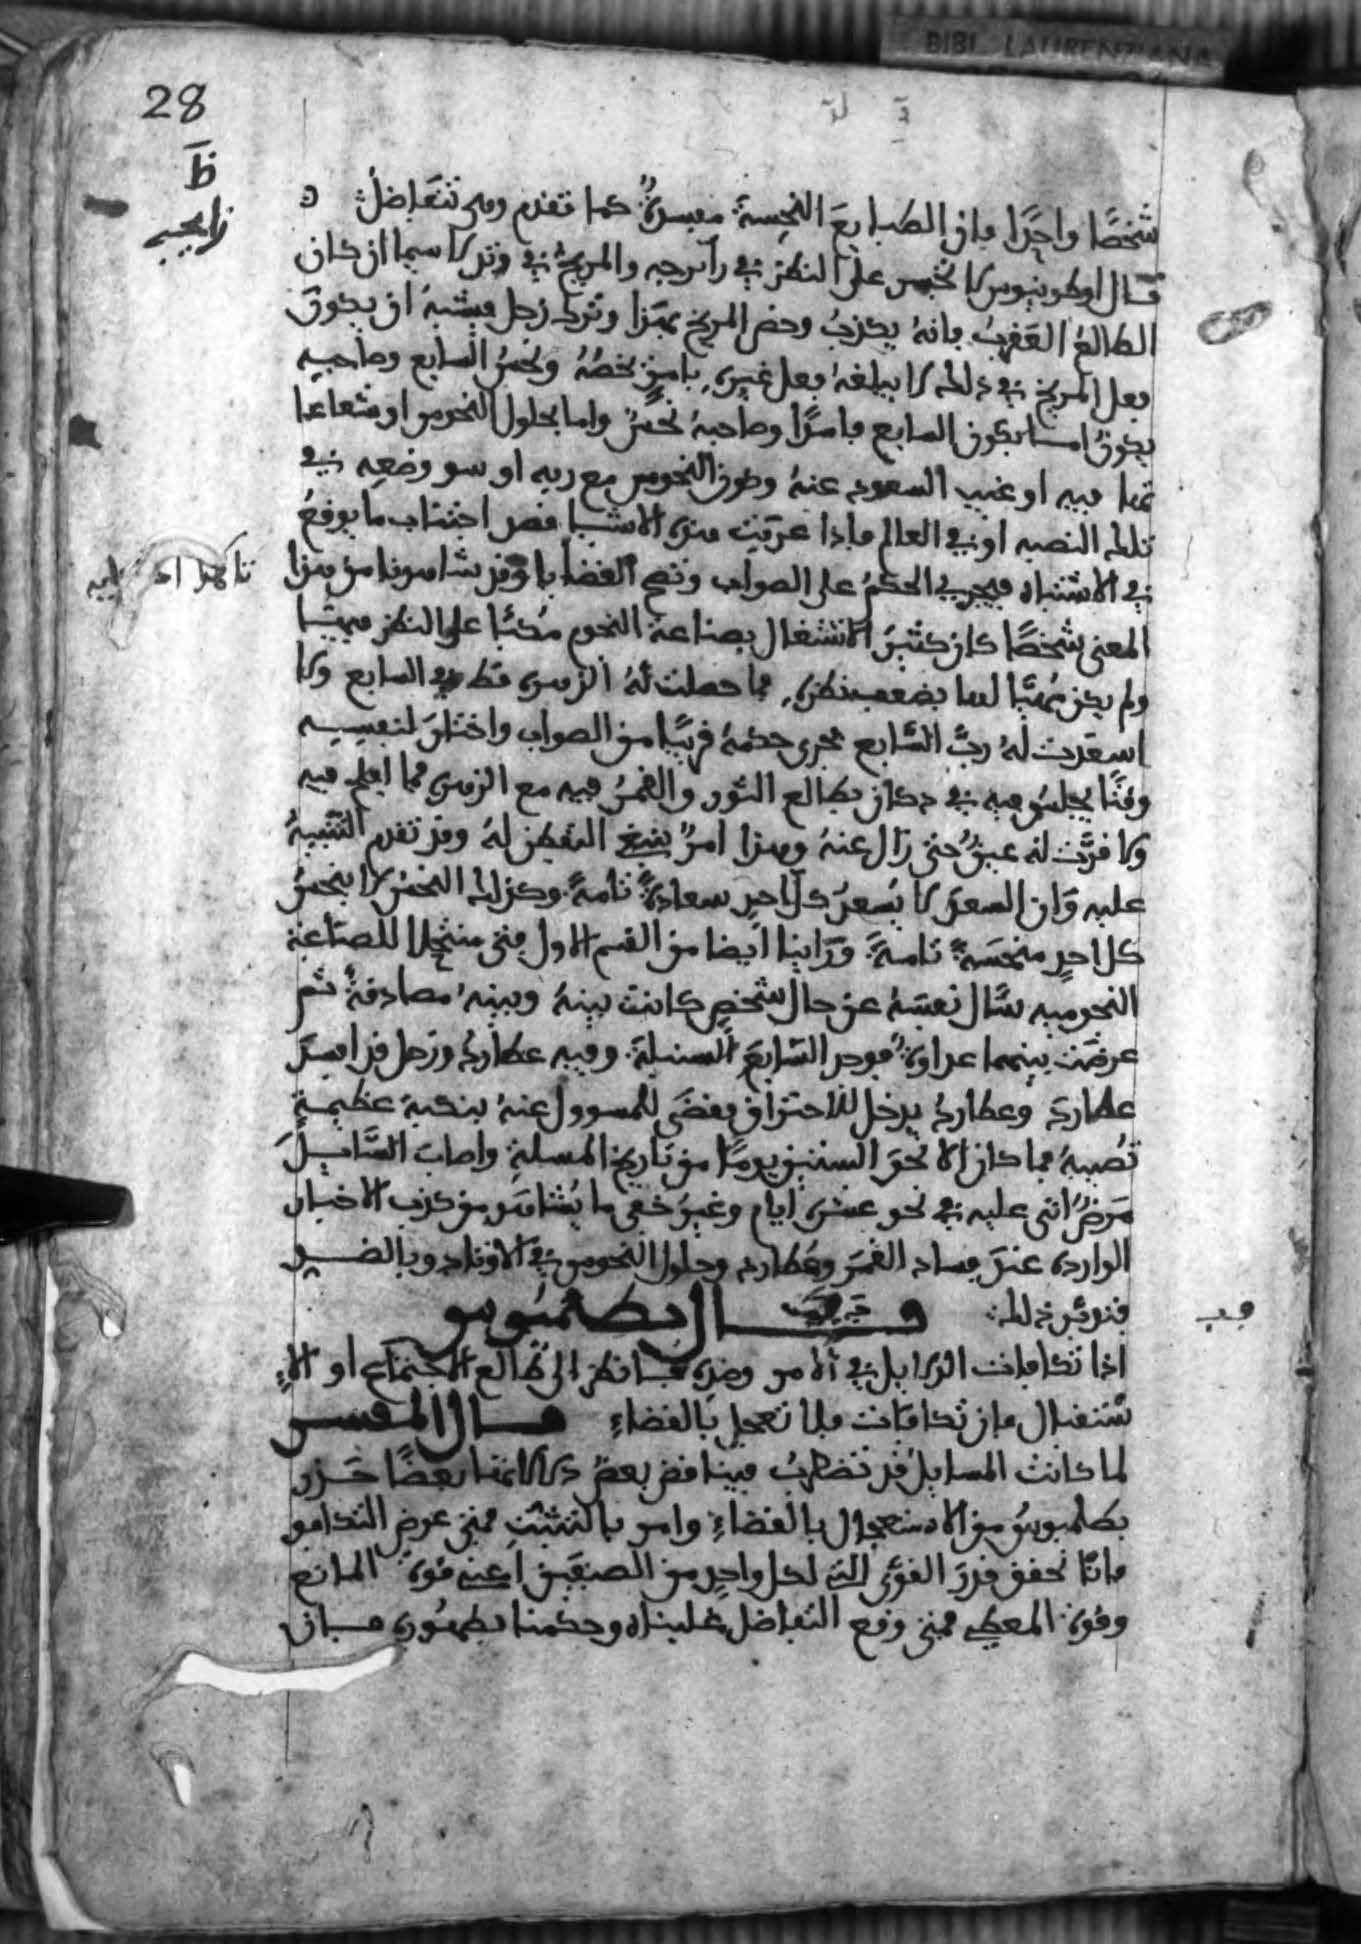 BIBL. LAURENZIANA
28
ظ
شخصًا واحدًا فان الطبايع النحسة مفسدة كما تقدم وهي تتفاضل
قال اوطوينيوس لا تحبس على النظر في را برجه والمريخ في وتد لا سيما ان كان
الطالع العقرب فانه يكذب وخص المريخ بهذا وترك زحل فيشبه ان يكون
فعل المريخ في ذلك لا يبلغه فعل غيره بامر يخصه ونحس السابع وصاحبه
يكون اما بكون السابع فاسدًا وصاحبه نحس واما بحلول النحوس او شعاعها
فيه او غيب السعود عنه وكون النحوس مع ربه او سو وضعه في
تلك النصبه او في العالم فاذا عرفت هذه الاشيا فصد اجتناب ما يوقع
في الاشتباه فيجري الحكم على الصواب وتصح القضايا وقد شاهدنا من هذا
المعنى شخصًا كان كثير الاشتغال بصناعة النجوم مكبًا على النظر فيها
ولم يكن مهيّا لها بضعف نظره فما حصلت له الزهرة قط في السابع ولا
اسعدت له رب السابع فجرى حكمه قريبًا من الصواب واختار لنفسه
وقتًا يجلس فيه في دكان بطالع الثور والقمر فيه مع الزهرة فما افلح فيه
ولا قرت له عين حتى زال عنه وهذا امر ينبغي التفطن له وقد تقدم التنبيه
عليه وان السعد لا يسعد كل احد سعادة تامة وكذلك النحس لا ينحس
كل احد منحسة تامة وراينا ايضا من القسم الاول فتى منتحلا للصناعة
النجوميه سال نفسه عن حال شخص كانت بينه وبينه مصادقة ثم
عرضت بينهما عداوة فوجد السابع السنبلة وفيه عطارد وزحل قد افسد
عطارد وعطارد يدخل للاحتراق فقضى للمسوول عنه بنكبة عظيمة
تصيبه فما كان الا نحو الستين يومًا من تاريخ المسلة واصاب السايل
مرض اتى عليه في نحو عشرة ايام وغير خفي ما يشاهد من كذب الاخبار
الوارده عند فساد القمر وعطارد وحلول النحوس في الاوتاد وبالضد
فتوثر ذلك
قال بطلميوس
اذا تكافات الدلايل في الامر وضده فانظر الى طالع الاجتماع او الا
ستقبال فان تكافات فلا تعجل بالقضاء قال المفسر
لما كانت المسايل قد تضطرب فيناقض بعض دلالاتها بعضًا حذر
بطلميوس من الاستعجال بالقضاء وامر بالتثبت فمتى عرض التكافو
فانا نحقق قدر القوى التي لكل واحد من الصنفين اعني قوة المانع
وقوة المعطي فمتى وقع التفاضل غلبناه وحكمنا بظهوره فان